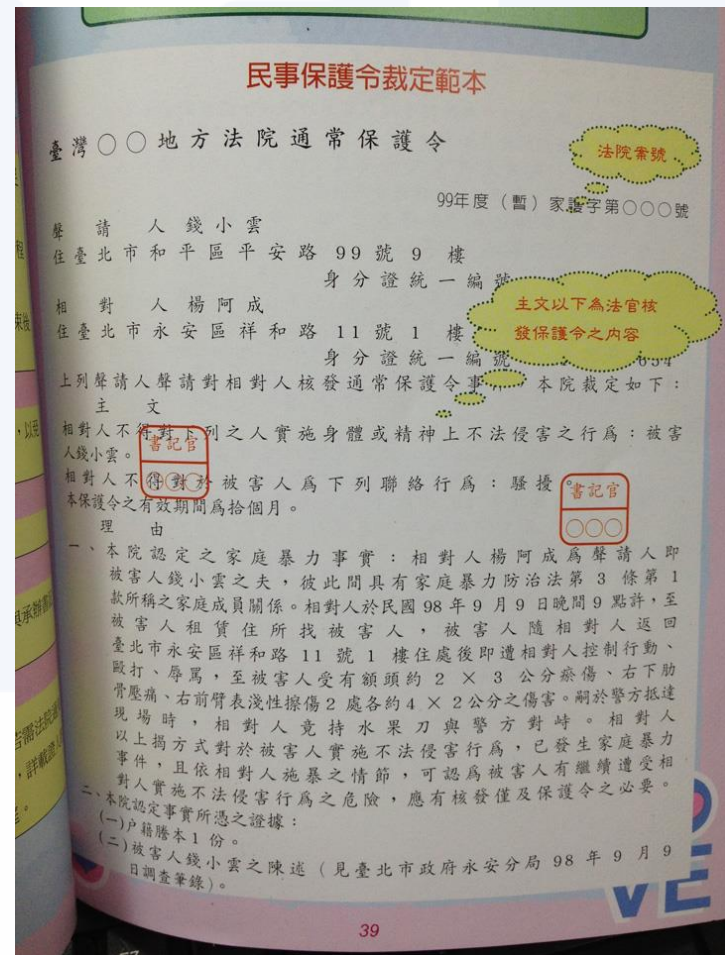 民事保護令裁定範本
臺灣○○地方法院通常保護令
法院案號
99年度（暫）家護字第○○○號
聲請人錢小雲
住臺北市和平區平安路99號9樓
身分證統一編號
相對人楊阿成
住臺北市永安區祥和路11號1樓
身分證統一編號
主文以下為法官核
發保護令之內容
上列聲請人聲請對相對人核發通常保護令事 本院裁定如下：
主文
相對人不得對下列之人實施身體或精神上不法侵害之行為：被害
人錢小雲。
相對人不得對於被害人為下列聯絡行為：騷擾。
本保護令之有效期間為拾個月。
書記官
○○○
書記官
○○○
理由
一、本院認定之家庭暴力事實：相對人楊阿成為聲請人即
被害人錢小雲之夫，彼此間具有家庭暴力防治法第3條第1
款所稱之家庭成員關係。相對人於民國98年9月9日晚間9點許，至
被害人租賃住所找被害人，被害人隨相對人返回
臺北市永安區祥和路11號1樓住處後即遭相對人控制行動、
毆打、辱罵，至被害人受有額頭約2×3公分瘀傷、右下肋
骨壓痛、右前臂表淺性擦傷2處各約4×2公分之傷害。嗣於警方抵達
現場時，相對人竟持水果刀與警方對峙。相對人
以上揭方式對於被害人實施不法侵害行為，已發生家庭暴力
事件，且依相對人施暴之情節，可認為被害人有繼續遭受相
對人實施不法侵害行為之危險，應有核發僅及保護令之必要。
二、本院認定事實所憑之證據：
(一)戶籍謄本1份。
(二)被害人錢小雲之陳述（見臺北市政府永安分局98年9月9
日調查筆錄）。
VE
39